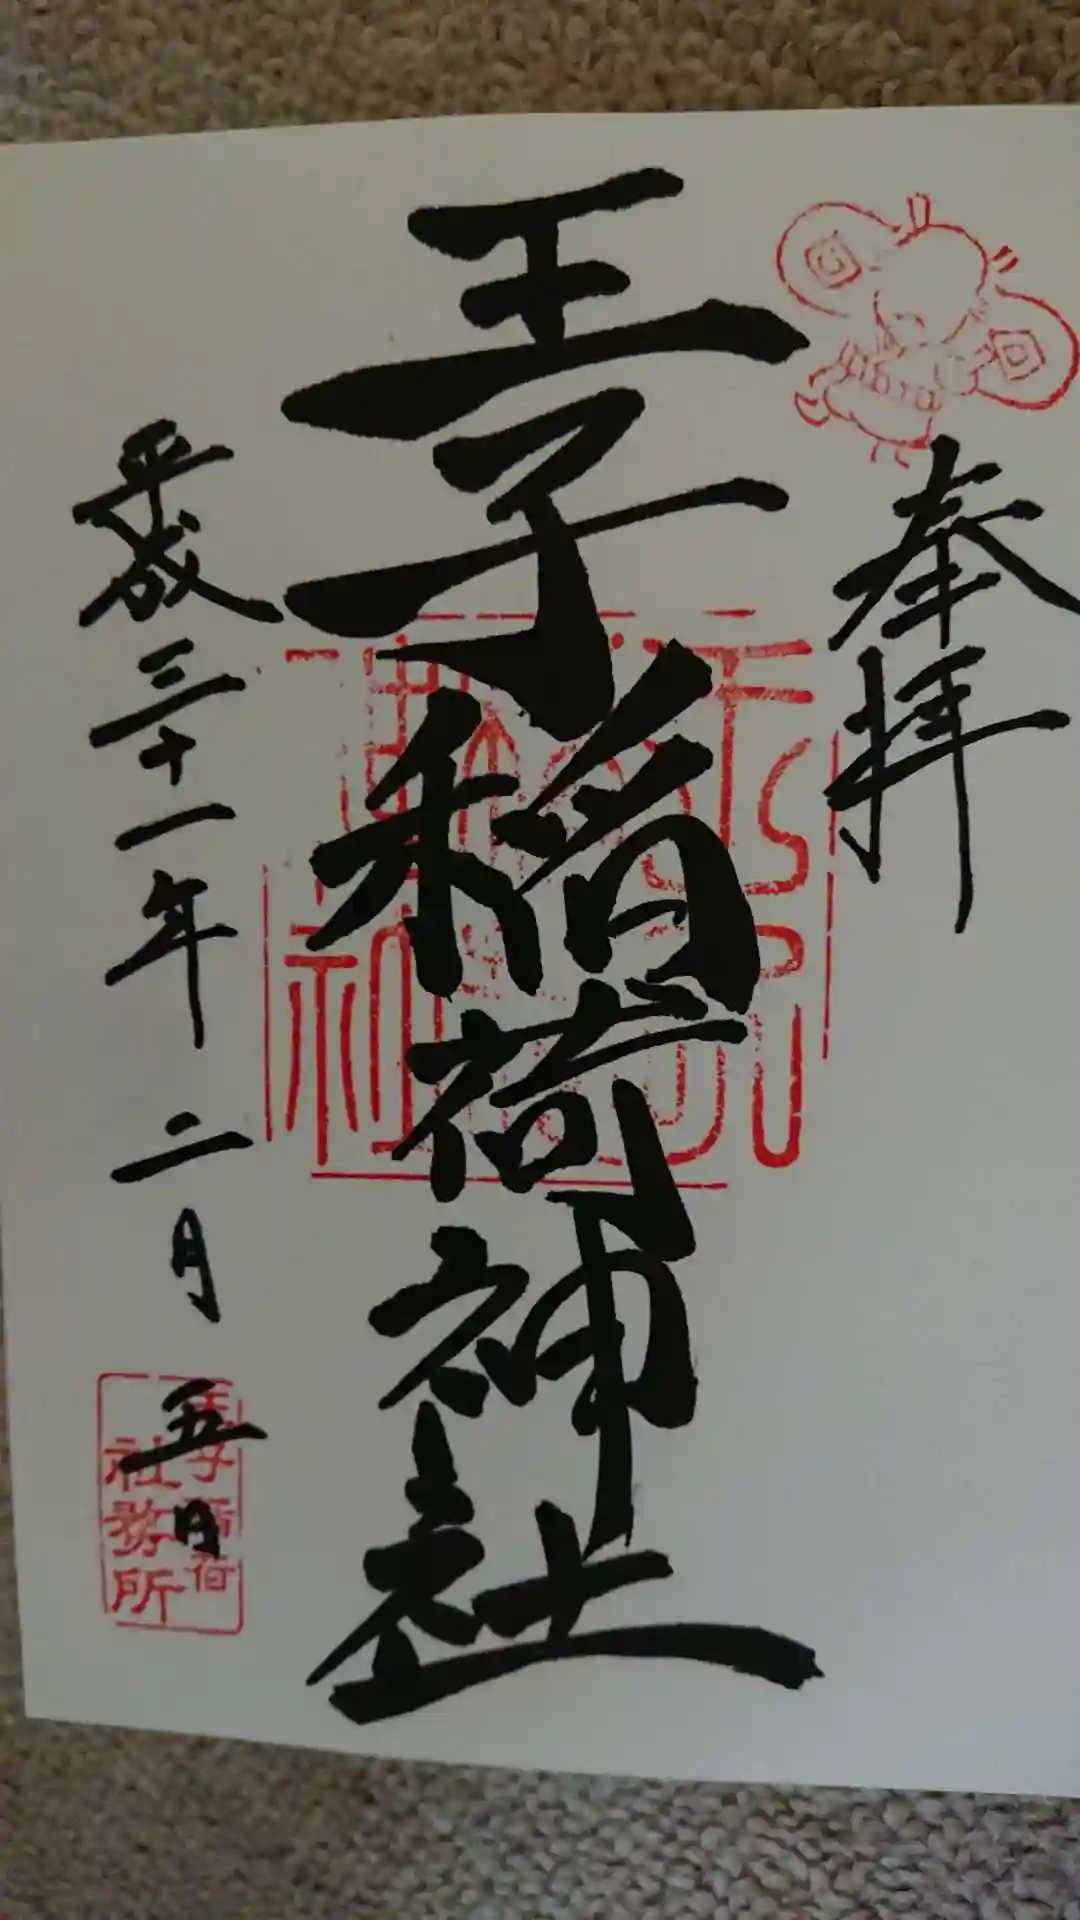 奉拝
王子稲荷神社
平成三十一年二月五日
王子稲荷
社務所